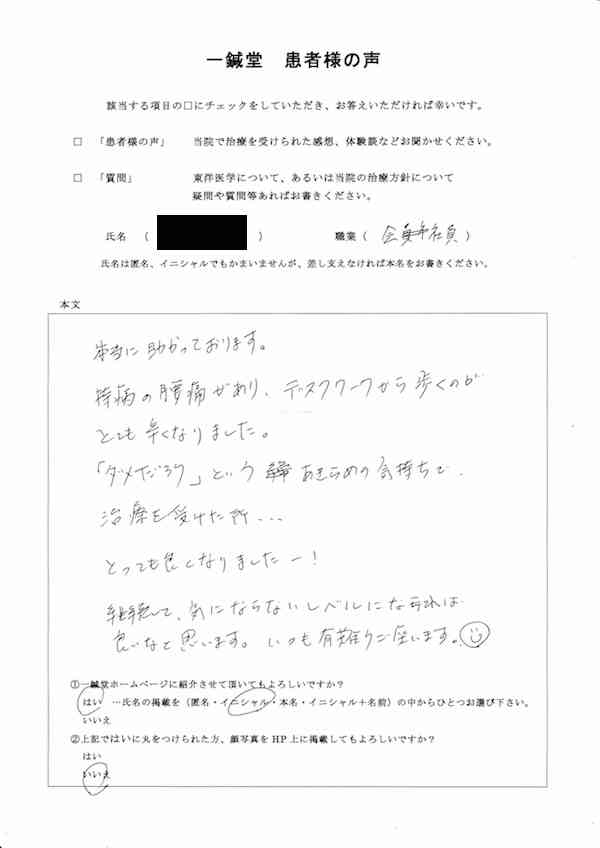 一鍼堂 患者様の声
該当する項目の□にチェックをしていただき、お答えいただければ幸いです。
□ 「患者様の声」 当院で治療を受けられた感想、体験談などお聞かせください。
□ 「質問」 東洋医学について、あるいは当院の治療方針について
疑問や質問等あればお書きください。
氏名 ( ) 職業 ( 会社員 )
氏名は匿名、イニシャルでもかまいませんが、差し支えなければ本名をお書きください。
本文
本当に助かっております。
持病の腰痛があり、デスクワークから歩くのが
とても辛くなりました。
「ダメだろう」という あきらめの気持ちで、
治療を受けた所...
とっても良くなりましたー!
継続して、気にならないレベルになれれば
良いなと思います。いつも有難うございます。
①一鍼堂ホームページに紹介させて頂いてもよろしいですか?
はい …氏名の掲載を(匿名・イニシャル・本名・イニシャル+名前)の中からひとつお選び下さい。
いいえ
②上記ではいに丸をつけられた方、顔写真をHP上に掲載してもよろしいですか?
はい
いいえ